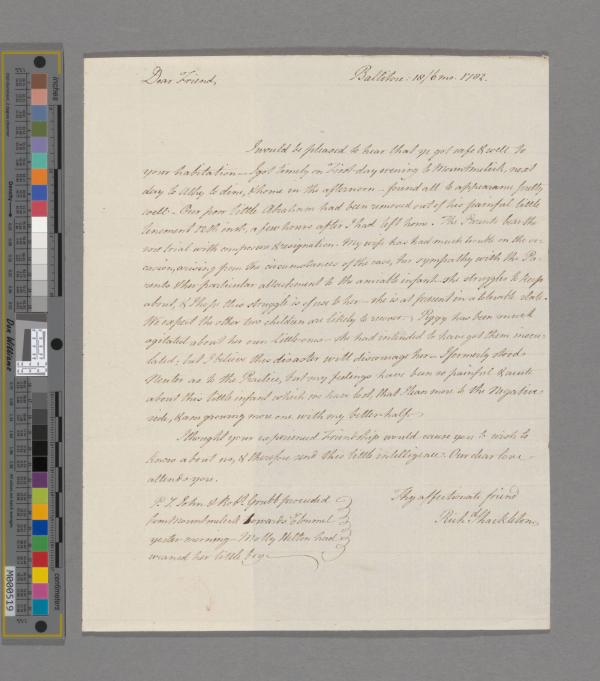 Dear Friend,
Ballitore: 18/6mo. 1782.
I would be pleased to hear that ye got safe & well to
your habitation — I got timely on First-day evening to Mountmelick, next
day to Athy to dine, & home in the afternoon — found all to appearance pretty
well — Our poor little Abraham had been removed out of his painful little
tenement 12th inst. a few hours after I had left home. The Parents bear the
sore trial with composure & resignation. My wife has had much trouble on the oc-
casion, arising from the circumstances of the case, her sympathy with the Pa-
rents & her particular attachment to the amiable infant — she struggles to keep
about, & I hope this struggle is of use to her — she is at present in a tolerable state.
We expect the other two children are likely to recover. Peggy has been much
agitated about her own Little-ones — she had intended to have got them inocu-
lated; but I believe this disaster will discourage her — I formerly stood
Neuter as to the Practice, but my feelings have been so painful & acute
about this little infant which we have lost, that I lean more to the Negative
side, & am growing more one with my better-half —
I thought your experienced Friendship would cause you to wish to
know about us, & therefore send this little intelligence. Our dear love
attends you.
Thy affectionate friend
Richd. Shackleton
P.S. John & Robt. Grubb proceeded
from Mountmelick towards Clonmel
yester-morning — Molly Helton had
weaned her little boy —
inches
centimetres
Don Williams
M000519